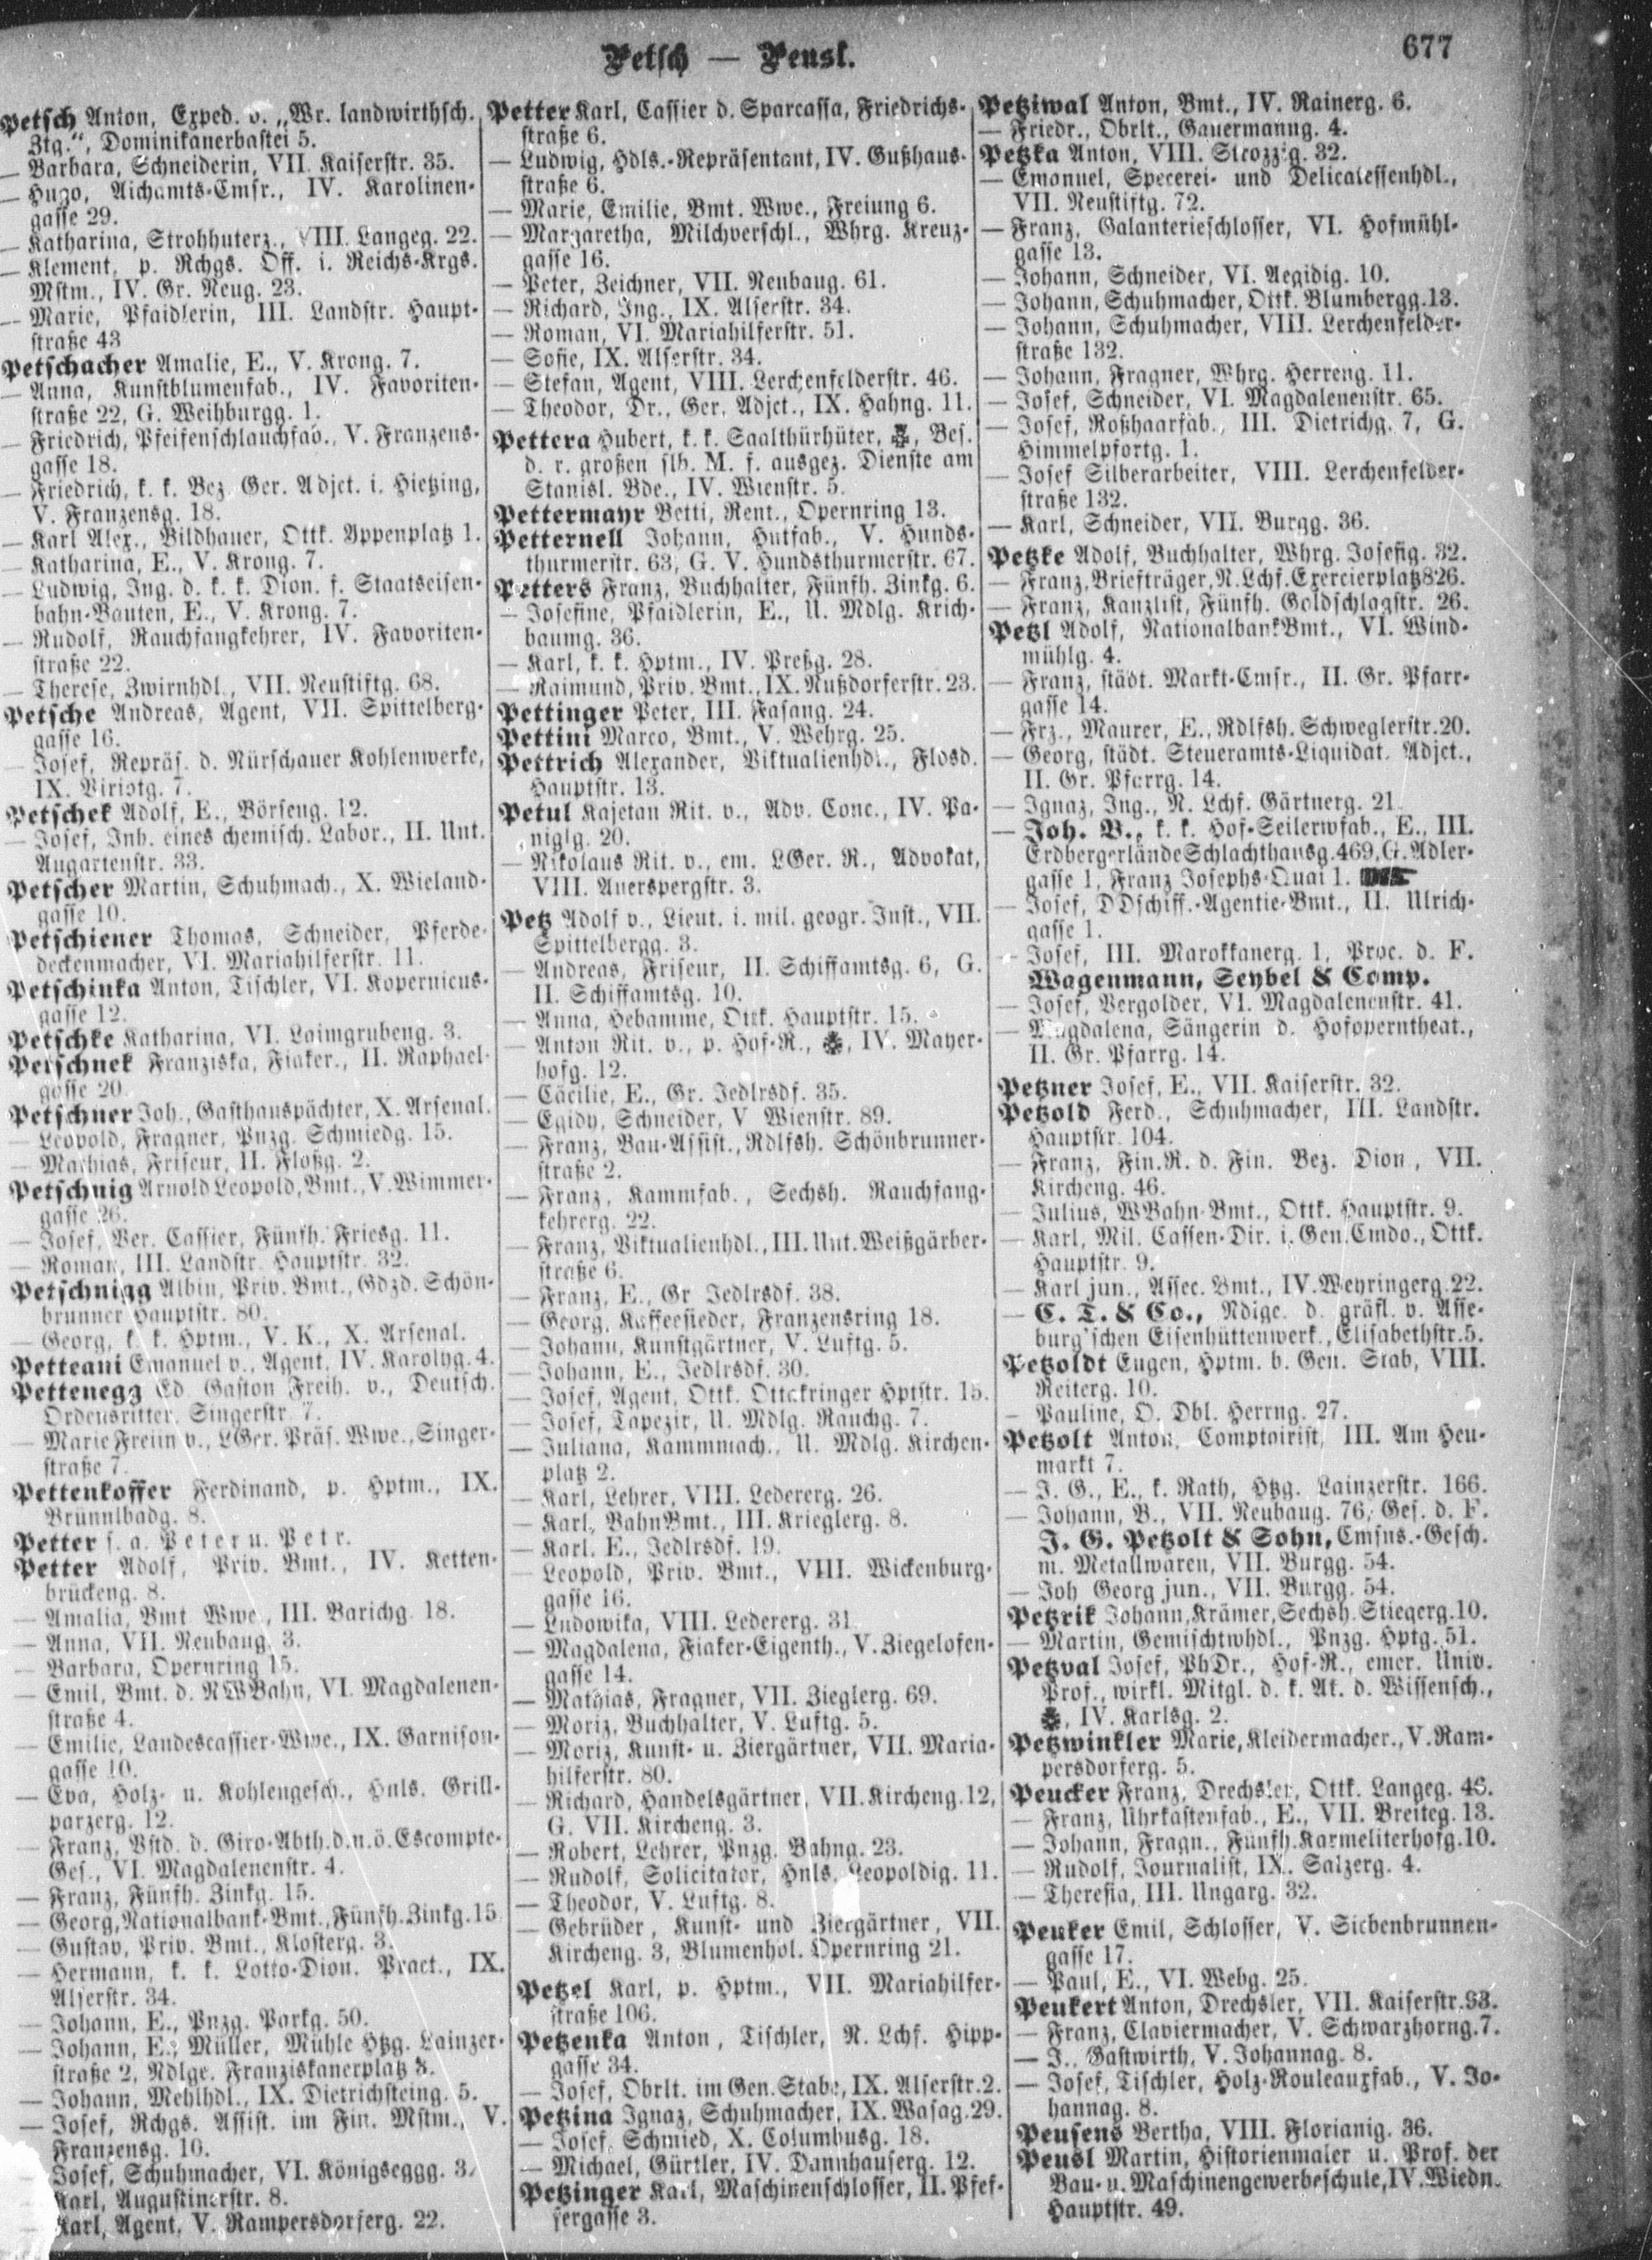 Petsch — Peusl.
677
Petsch Anton, Exped. v. „Wr. landwirthsch.
Ztg.“, Dominikanerbastei 5.
— Barbara, Schneiderin, VII. Kaiserstr. 35.
— Hugo, Aichamts-Cmsr., IV. Karolinen-
gasse 29.
— Katharina, Strohhuterz., VIII. Langeg. 22.
— Klement, p. Rchgs. Off. i. Reichs-Krgs.
Mstm., IV. Gr. Neug. 23.
— Marie, Pfaidlerin, III. Landstr. Haupt-
straße 43
Petschacher Amalie, E., V. Krong. 7.
— Anna, Kunstblumenfab., IV. Favoriten-
straße 22, G. Weihburgg. 1.
— Friedrich, Pfeifenschlauchfab., V. Franzens-
gasse 18.
— Friedrich, k. k. Bez. Ger. Adjct. i. Hietzing,
V. Franzensg. 18.
— Karl Alex., Bildhauer, Ottk. Yppenplatz 1.
— Katharina, E., V. Krong. 7.
— Ludwig, Ing. d. k. k. Dion. f. Staatseisen-
bahn-Bauten, E., V. Krong. 7.
— Rudolf, Rauchfangkehrer, IV. Favoriten-
straße 22.
— Therese, Zwirnhdl., VII. Neustiftg. 68.
Petsche Andreas, Agent, VII. Spittelberg-
gasse 16.
— Josef, Repräs. d. Nürschauer Kohlenwerke,
IX. Viriotg. 7.
Petschek Adolf, E., Börseng. 12.
— Josef, Inh. eines chemisch. Labor., II. Unt.
Augartenstr. 33.
Petscher Martin, Schuhmach., X. Wieland-
gasse 10.
Petschiener Thomas, Schneider, Pferde-
deckenmacher, VI. Mariahilferstr. 11.
Petschinka Anton, Tischler, VI. Kopernicus-
gasse 12.
Petschke Katharina, VI. Laimgrubeng. 3.
Petschnek Franziska, Fiaker., II. Raphael-
gasse 20.
Petschner Joh., Gasthauspächter, X. Arsenal.
— Leopold, Fragner, Pnzg. Schmiedg. 15.
— Mathias, Friseur, II. Floßg. 2.
Petschnig Arnold Leopold, Bmt., V. Wimmer-
gasse 26.
— Josef, Ver. Cassier, Fünfh. Friesg. 11.
— Roman, III. Landstr. Hauptstr. 32.
Petschnigg Albin, Priv. Bmt., Gdzd. Schön-
brunner Hauptstr. 80.
— Georg, k. k. Hptm., V. K., X. Arsenal.
Petteani Emanuel v., Agent, IV. Karolyg. 4.
Pettenegg Ed. Gaston Freih. v., Deutsch.
Ordensritter, Singerstr. 7.
— Marie Freiin v., LGer. Präs. Wwe., Singer-
straße 7.
Pettenkoffer Ferdinand, p. Hptm., IX.
Brünnlbadg. 8.
Petter s. a. Peter u. Petr.
Petter Adolf, Priv. Bmt., IV. Ketten-
brückeng. 8.
— Amalia, Bmt. Wwe., III. Barichg. 18.
— Anna, VII. Neubaug. 3.
— Barbara, Opernring 15.
— Emil, Bmt. d. NWBahn, VI. Magdalenen-
straße 4.
— Emilie, Landescassier-Wwe., IX. Garnison-
gasse 10.
— Eva, Holz- u. Kohlengesch., Hnls. Grill-
parzerg. 12.
— Franz, Vstd. d. Giro-Abth. d. n. ö. Escompte-
Ges., VI. Magdalenenstr. 4.
— Franz, Fünfh. Zinkg. 15.
— Georg, Nationalbank-Bmt., Fünfh. Zinkg. 15
— Gustav, Priv. Bmt., Klosterg. 3.
— Hermann, k. k. Lotto-Dion. Pract., IX.
Alserstr. 34.
— Johann, E., Pnzg. Parkg. 50.
— Johann, E., Müller, Mühle Htzg. Lainzer-
straße 2, Ndlge. Franziskanerplatz 3.
— Johann, Mehlhdl., IX. Dietrichsteing. 5.
— Josef, Rchgs. Assist. im Fin. Mstm., V.
Franzensg. 10.
Josef, Schuhmacher, VI. Königseggg. 3.
Karl, Augustinerstr. 8.
Karl, Agent, V. Rampersdorferg. 22.
Petter Karl, Cassier d. Sparcassa, Friedrichs-
straße 6.
— Ludwig, Hdls.-Repräsentant, IV. Gußhaus-
straße 6.
— Marie, Emilie, Bmt. Wwe., Freiung 6.
— Margaretha, Milchverschl., Whrg. Kreuz-
gasse 16.
— Peter, Zeichner, VII. Neubaug. 61.
— Richard, Ing., IX. Alserstr. 34.
— Roman, VI. Mariahilferstr. 51.
— Sofie, IX. Alserstr. 34.
— Stefan, Agent, VIII. Lerchenfelderstr. 46.
— Theodor, Dr., Ger. Adjct., IX. Hahng. 11.
Pettera Hubert, k. k. Saalthürhüter, Bes.
d. r. großen slb. M. f. ausgez. Dienste am
Stanisl. Bde., IV. Wienstr. 5.
Pettermayr Betti, Rent., Opernring 13.
Petternell Johann, Hutfab., V. Hunds-
thurmerstr. 63, G. V. Hundsthurmerstr. 67.
Petters Franz, Buchhalter, Fünfh. Zinkg. 6.
— Josefine, Pfaidlerin, E., U. Mdlg. Krich-
baumg. 36.
— Karl, k. k. Hptm., IV. Preßg. 28.
— Raimund, Priv. Bmt., IX. Nußdorferstr. 23.
Pettinger Peter, III. Fasang. 24.
Pettini Marco, Bmt., V. Wehrg. 25.
Pettrich Alexander, Viktualienhdl., Flosd.
Hauptstr. 13.
Petul Kajetan Rit. v., Adv. Conc., IV. Pa-
niglg. 20.
— Nikolaus Rit. v., em. LGer. R., Advokat,
VIII. Auerspergstr. 3.
Petz Adolf v., Lieut. i. mil. geogr. Inst., VII.
Spittelbergg. 3.
— Andreas, Friseur, II. Schiffamtsg. 6, G.
II. Schiffamtsg. 10.
— Anna, Hebamme, Ottk. Hauptstr. 15.
— Anton Rit. v., p. Hof-R., IV. Mayer-
hofg. 12.
— Cäcilie, E., Gr. Jedlrsdf. 35.
— Egidy, Schneider, V Wienstr. 89.
— Franz, Bau-Assist., Rdlfsh. Schönbrunner-
straße 2.
— Franz, Kammfab., Sechsh. Rauchfang-
kehrerg. 22.
— Franz, Viktualienhdl., III. Unt. Weißgärber-
straße 6.
— Franz, E., Gr Jedlrsdf. 38.
— Georg, Kaffeesieder, Franzensring 18.
— Johann, Kunstgärtner, V. Luftg. 5.
— Johann, E., Jedlrsdf. 30.
— Josef, Agent, Ottk. Ottakringer Hptstr. 15.
— Josef, Tapezir, U. Mdlg. Rauchg. 7.
— Juliana, Kammmach., U. Mdlg. Kirchen-
platz 2.
— Karl, Lehrer, VIII. Ledererg. 26.
— Karl, BahnBmt., III. Krieglerg. 8.
— Karl, E., Jedlrsdf. 19.
— Leopold, Priv. Bmt., VIII. Wickenburg-
gasse 16.
— Ludowika, VIII. Ledererg. 31
— Magdalena, Fiaker-Eigenth., V. Ziegelofen-
gasse 14.
— Mathias, Fragner, VII. Zieglerg. 69.
— Moriz, Buchhalter, V. Luftg. 5.
— Moriz, Kunst- u. Ziergärtner, VII. Maria-
hilferstr. 80.
— Richard, Handelsgärtner, VII. Kircheng. 12,
G. VII. Kircheng. 3.
— Robert, Lehrer, Pnzg. Bahng. 23.
— Rudolf, Solicitator, Hnls. Leopoldig. 11.
— Theodor, V. Luftg. 8.
— Gebrüder, Kunst- und Ziergärtner, VII.
Kircheng. 3, Blumenhdl. Opernring 21.
Petzel Karl, p. Hptm., VII. Mariahilfer-
straße 106.
Petzenka Anton, Tischler, N. Lchf. Hipp-
gasse 34.
— Josef, Obrlt. im Gen. Stabe, IX. Alserstr. 2.
Petzina Ignaz, Schuhmacher, IX. Wasag. 29.
— Josef, Schmied, X. Columbusg. 18.
— Michael, Gürtler, IV. Dannhauserg. 12.
Petzinger Karl, Maschinenschlosser, II. Pfef-
fergasse 3.
Petziwal Anton, Bmt., IV. Rainerg. 6.
— Friedr., Obrlt., Gauermanng. 4.
Petzka Anton, VIII. Strozzig. 32.
— Emanuel, Specerei- und Delicatessenhdl.,
VII. Neustiftg. 72.
— Franz, Galanterieschlosser, VI. Hofmühl-
gasse 13.
— Johann, Schneider, VI. Aegidig. 10.
— Johann, Schuhmacher, Ottk. Blumbergg. 13.
— Johann, Schuhmacher, VIII. Lerchenfelder-
straße 132.
— Johann, Fragner, Whrg. Herreng. 11.
— Josef, Schneider, VI. Magdalenenstr. 65.
— Josef, Roßhaarfab., III. Dietrichg. 7, G.
Himmelpfortg. 1.
— Josef Silberarbeiter, VIII. Lerchenfelder-
straße 132.
— Karl, Schneider, VII. Burgg. 36.
Petzke Adolf, Buchhalter, Whrg. Josefig. 32.
— Franz, Briefträger, N. Lchf. Exercierplatz 826.
— Franz, Kanzlist, Fünfh. Goldschlagstr. 26.
Petzl Adolf, NationalbankBmt., VI. Wind-
mühlg. 4.
— Franz, städt. Markt-Cmsr., II. Gr. Pfarr-
gasse 14.
— Frz., Maurer, E., Rdlfsh. Schweglerstr. 20.
— Georg, städt. Steueramts-Liquidat. Adjct.,
II. Gr. Pfarrg. 14.
— Ignaz, Ing., N. Lchf. Gärtnerg. 21
— Joh. B., k. k. Hof-Seilerwfab., E., III.
Erdbergerlände Schlachthausg. 469, G. Adler-
gasse 1, Franz Josephs-Quai 1.
— Josef, DDschiff.-Agentie-Bmt., II. Ulrich-
gasse 1.
— Josef, III. Marokkanerg. 1, Proc. d. F.
Wagenmann, Seybel & Comp.
— Josef, Vergolder, VI. Magdalenenstr. 41.
— Magdalena, Sängerin d. Hofoperntheat.,
II. Gr. Pfarrg. 14.
Petzner Josef, E., VII. Kaiserstr. 32.
Petzold Ferd., Schuhmacher, III. Landstr.
Hauptstr. 104.
— Franz, Fin. R. d. Fin. Bez. Dion, VII.
Kircheng. 46.
— Julius, WBahn-Bmt., Ottk. Hauptstr. 9.
— Karl, Mil. Cassen-Dir. i. Gen. Cmdo., Ottk.
Hauptstr. 9.
— Karl jun., Assec. Bmt., IV. Weyringerg. 22.
— C. T. & Co., Ndlge. d. gräfl. v. Asse-
burg'schen Eisenhüttenwerk., Elisabethstr. 5.
Petzoldt Eugen, Hptm. b. Gen. Stab, VIII.
Reiterg. 10.
— Pauline, O. Dbl. Herrng. 27.
Petzolt Anton, Comptoirist, III. Am Heu-
markt 7.
— J. G., E., k. Rath, Htzg. Lainzerstr. 166.
— Johann, B., VII. Neubaug. 76, Ges. d. F.
J. G. Petzolt & Sohn, Cmsns.-Gesch.
m. Metallwaren, VII. Burgg. 54.
— Joh Georg jun., VII. Burgg. 54.
Petzrik Johann, Krämer, Sechsh. Stiegerg. 10.
— Martin, Gemischtwhdl., Pnzg. Hptg. 51.
Petzval Josef, PhDr., Hof-R., emer. Univ.
Prof., wirkl. Mitgl. d. k. Ak. d. Wissensch.,
IV. Karlsg. 2.
Petzwinkler Marie, Kleidermacher., V. Ram-
persdorferg. 5.
Peucker Franz, Drechsler, Ottk. Langeg. 46.
— Franz, Uhrkastenfab., E., VII. Breiteg. 13.
— Johann, Fragn., Fünfh. Karmeliterhofg. 10.
— Rudolf, Journalist, IX. Salzerg. 4.
— Theresia, III. Ungarg. 32.
Peuker Emil, Schlosser, V. Siebenbrunnen-
gasse 17.
— Paul, E., VI. Webg. 25.
Peukert Anton, Drechsler, VII. Kaiserstr. 93.
— Franz, Claviermacher, V. Schwarzhorng. 7.
— J., Gastwirth, V. Johannag. 8.
— Josef, Tischler, Holz-Rouleauxfab., V. Jo-
hannag. 8.
Peusens Bertha, VIII. Florianig. 36.
Peusl Martin, Historienmaler u. Prof. der
Bau- u. Maschinengewerbeschule, IV. Wiedn.
Hauptstr. 49.